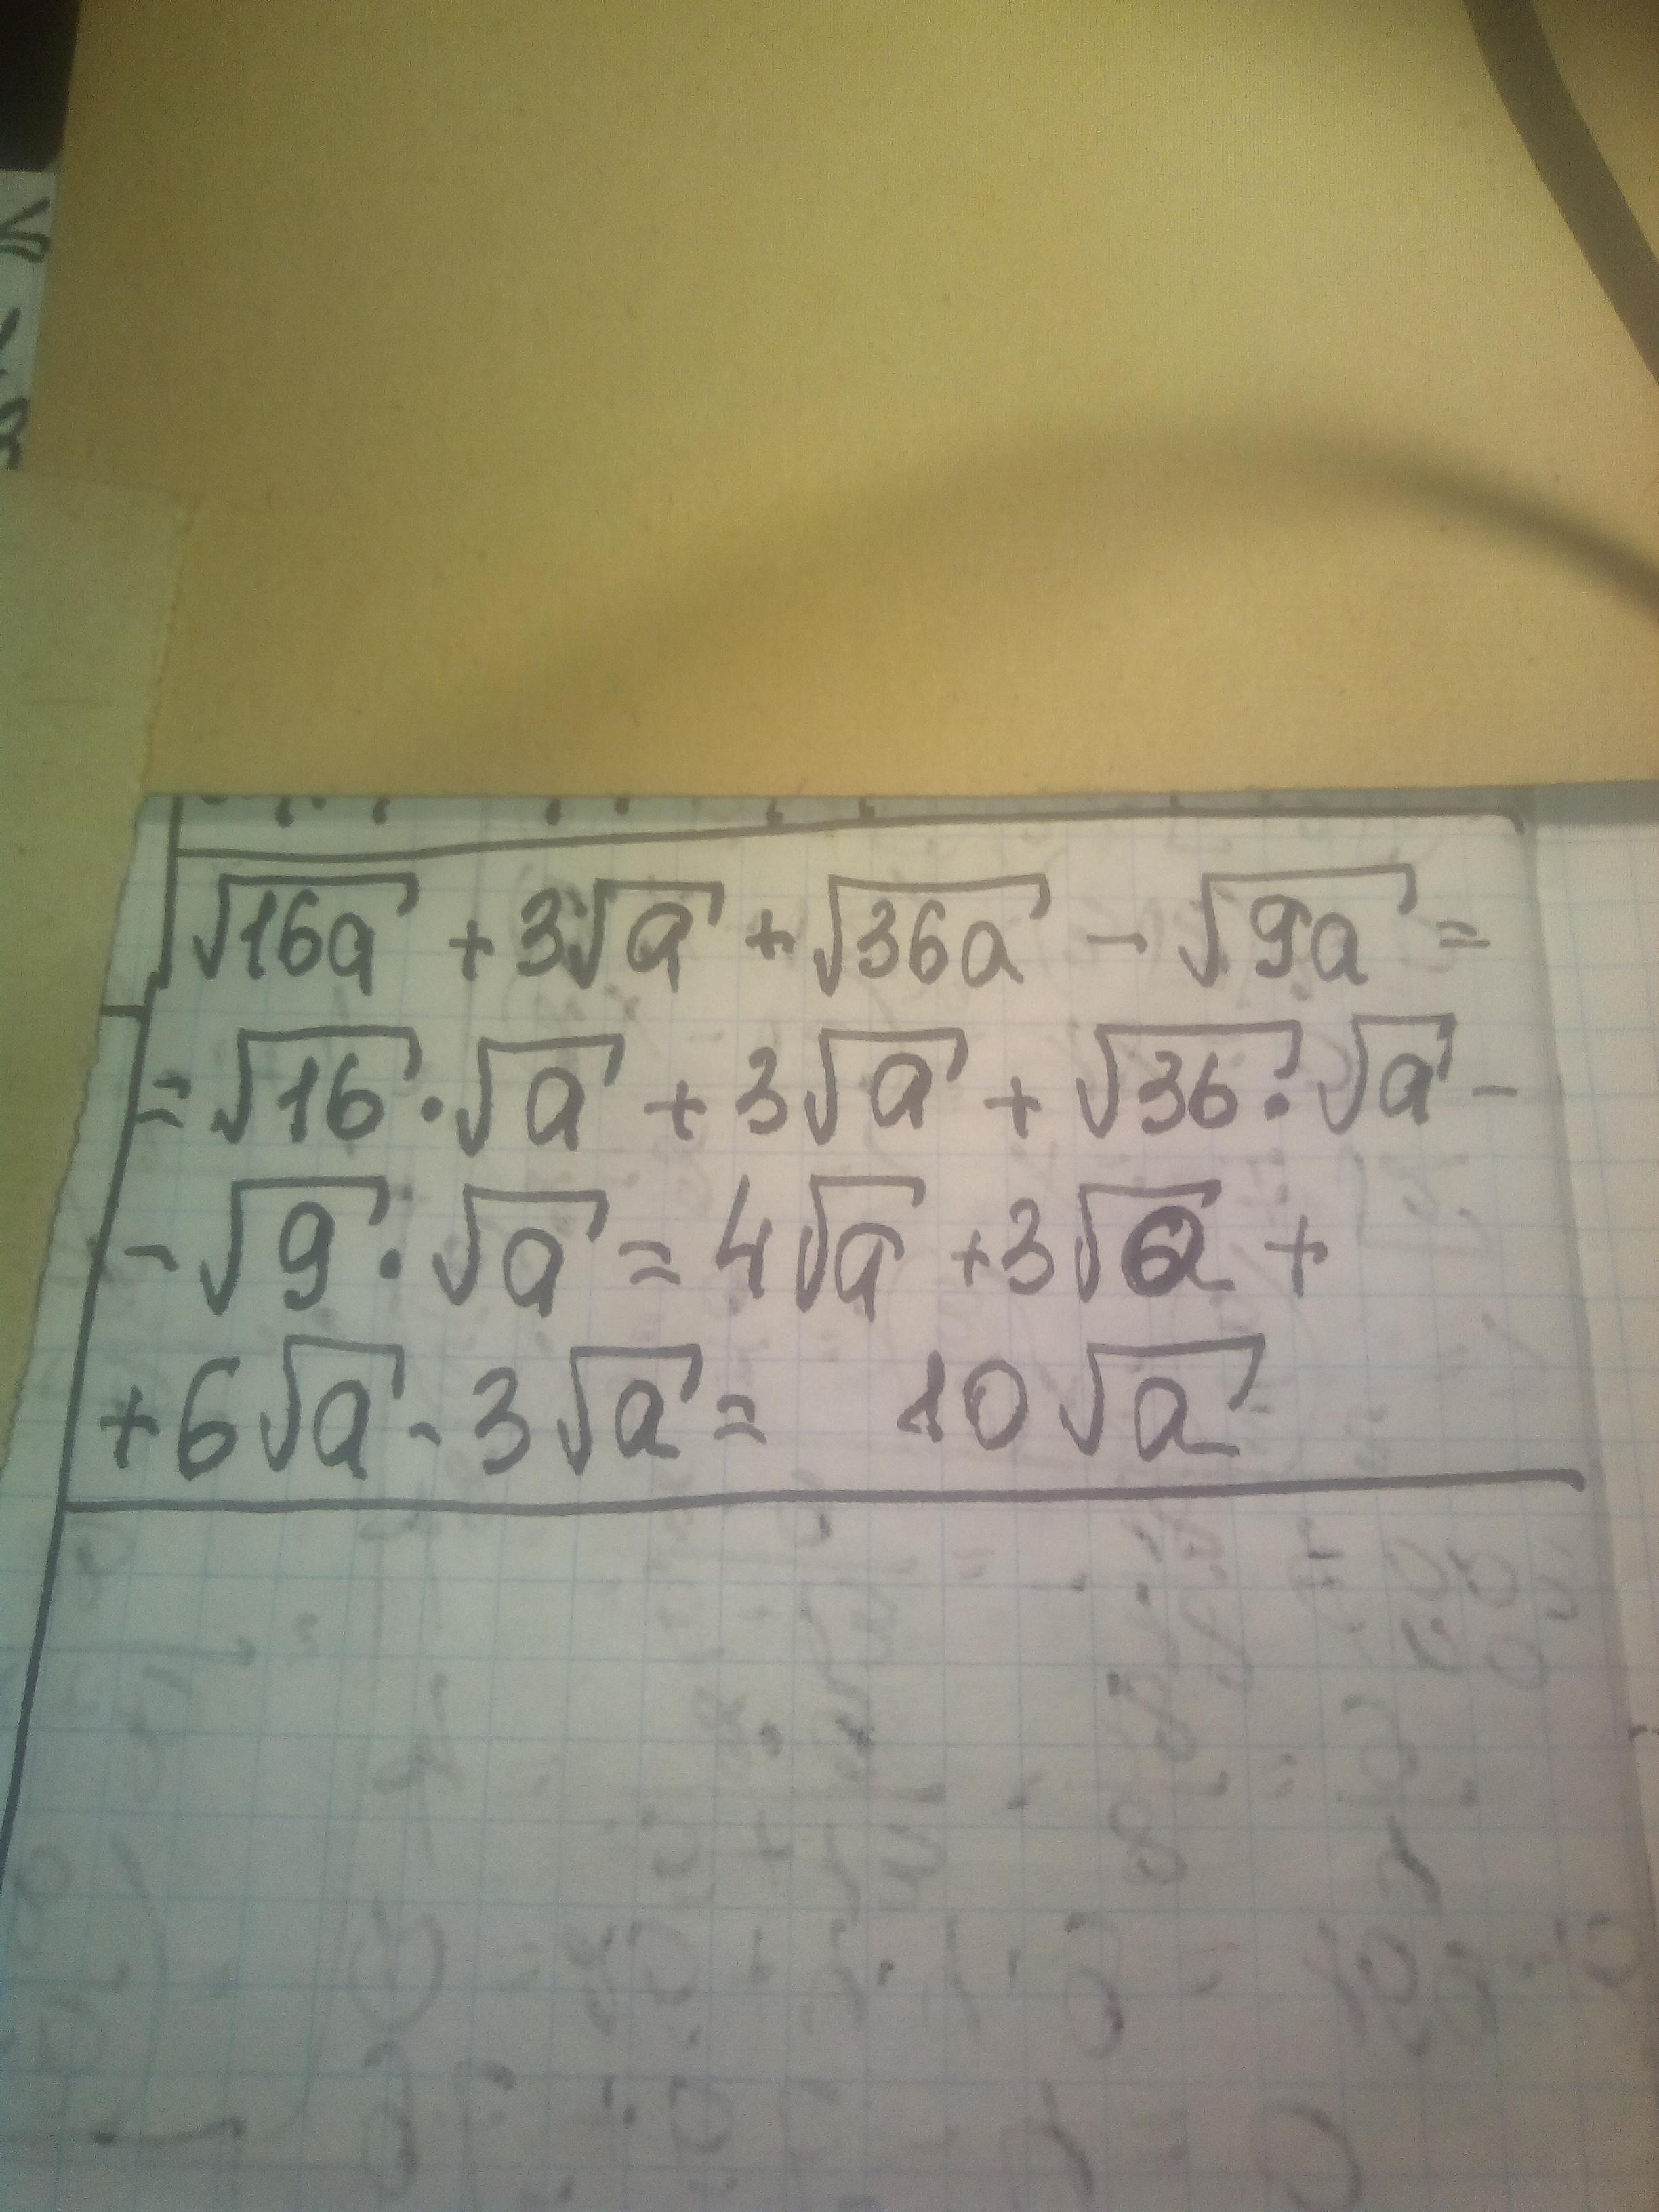 √16a + 3√a + √36a - √9a =
= √16 · √a + 3√a + √36 · √a -
- √9 · √a = 4√a + 3√a +
+ 6√a - 3√a = 10√a